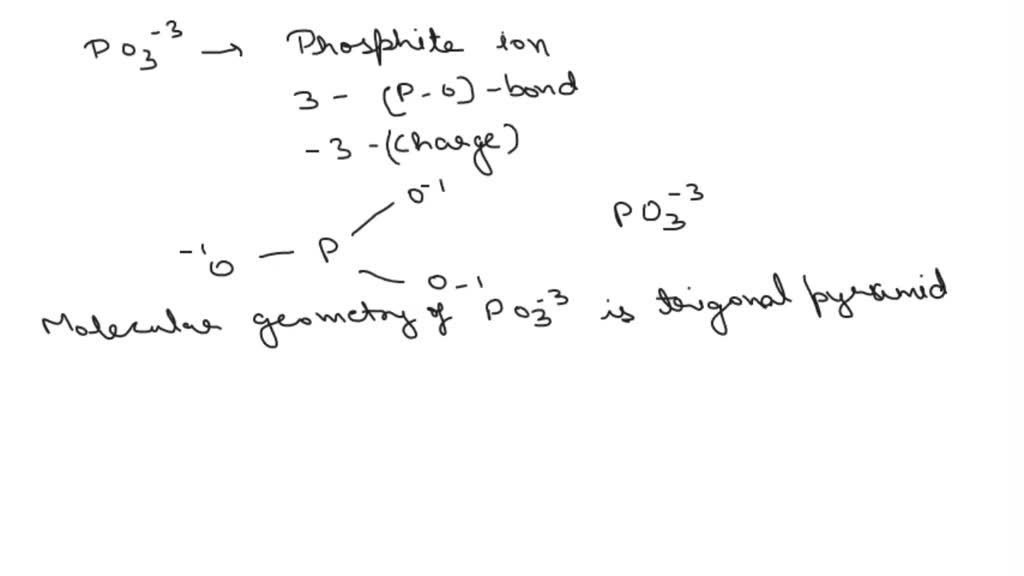 PO₃⁻³ → Phosphite ion
3 - (P-O) - bond
-3 - (charge)
O⁻¹
PO₃⁻³
⁻¹O — P
O⁻¹
Molecular geometry of PO₃⁻³ is trigonal pyramid